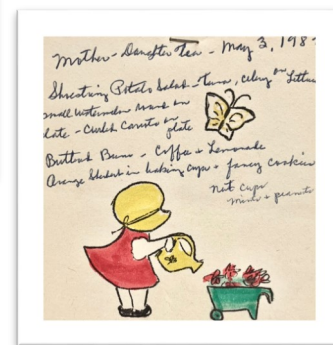 Mother - Daughter Tea - May 3, 198
Shoestring Potato Salad - tuna, celery on Lettuce
small watermelon round on
plate - Curled Carrots on plate
Buttered Buns - Coffee + Lemonade
Orange Sherbet in baking cups + fancy cookies
nut cups
mints + peanuts